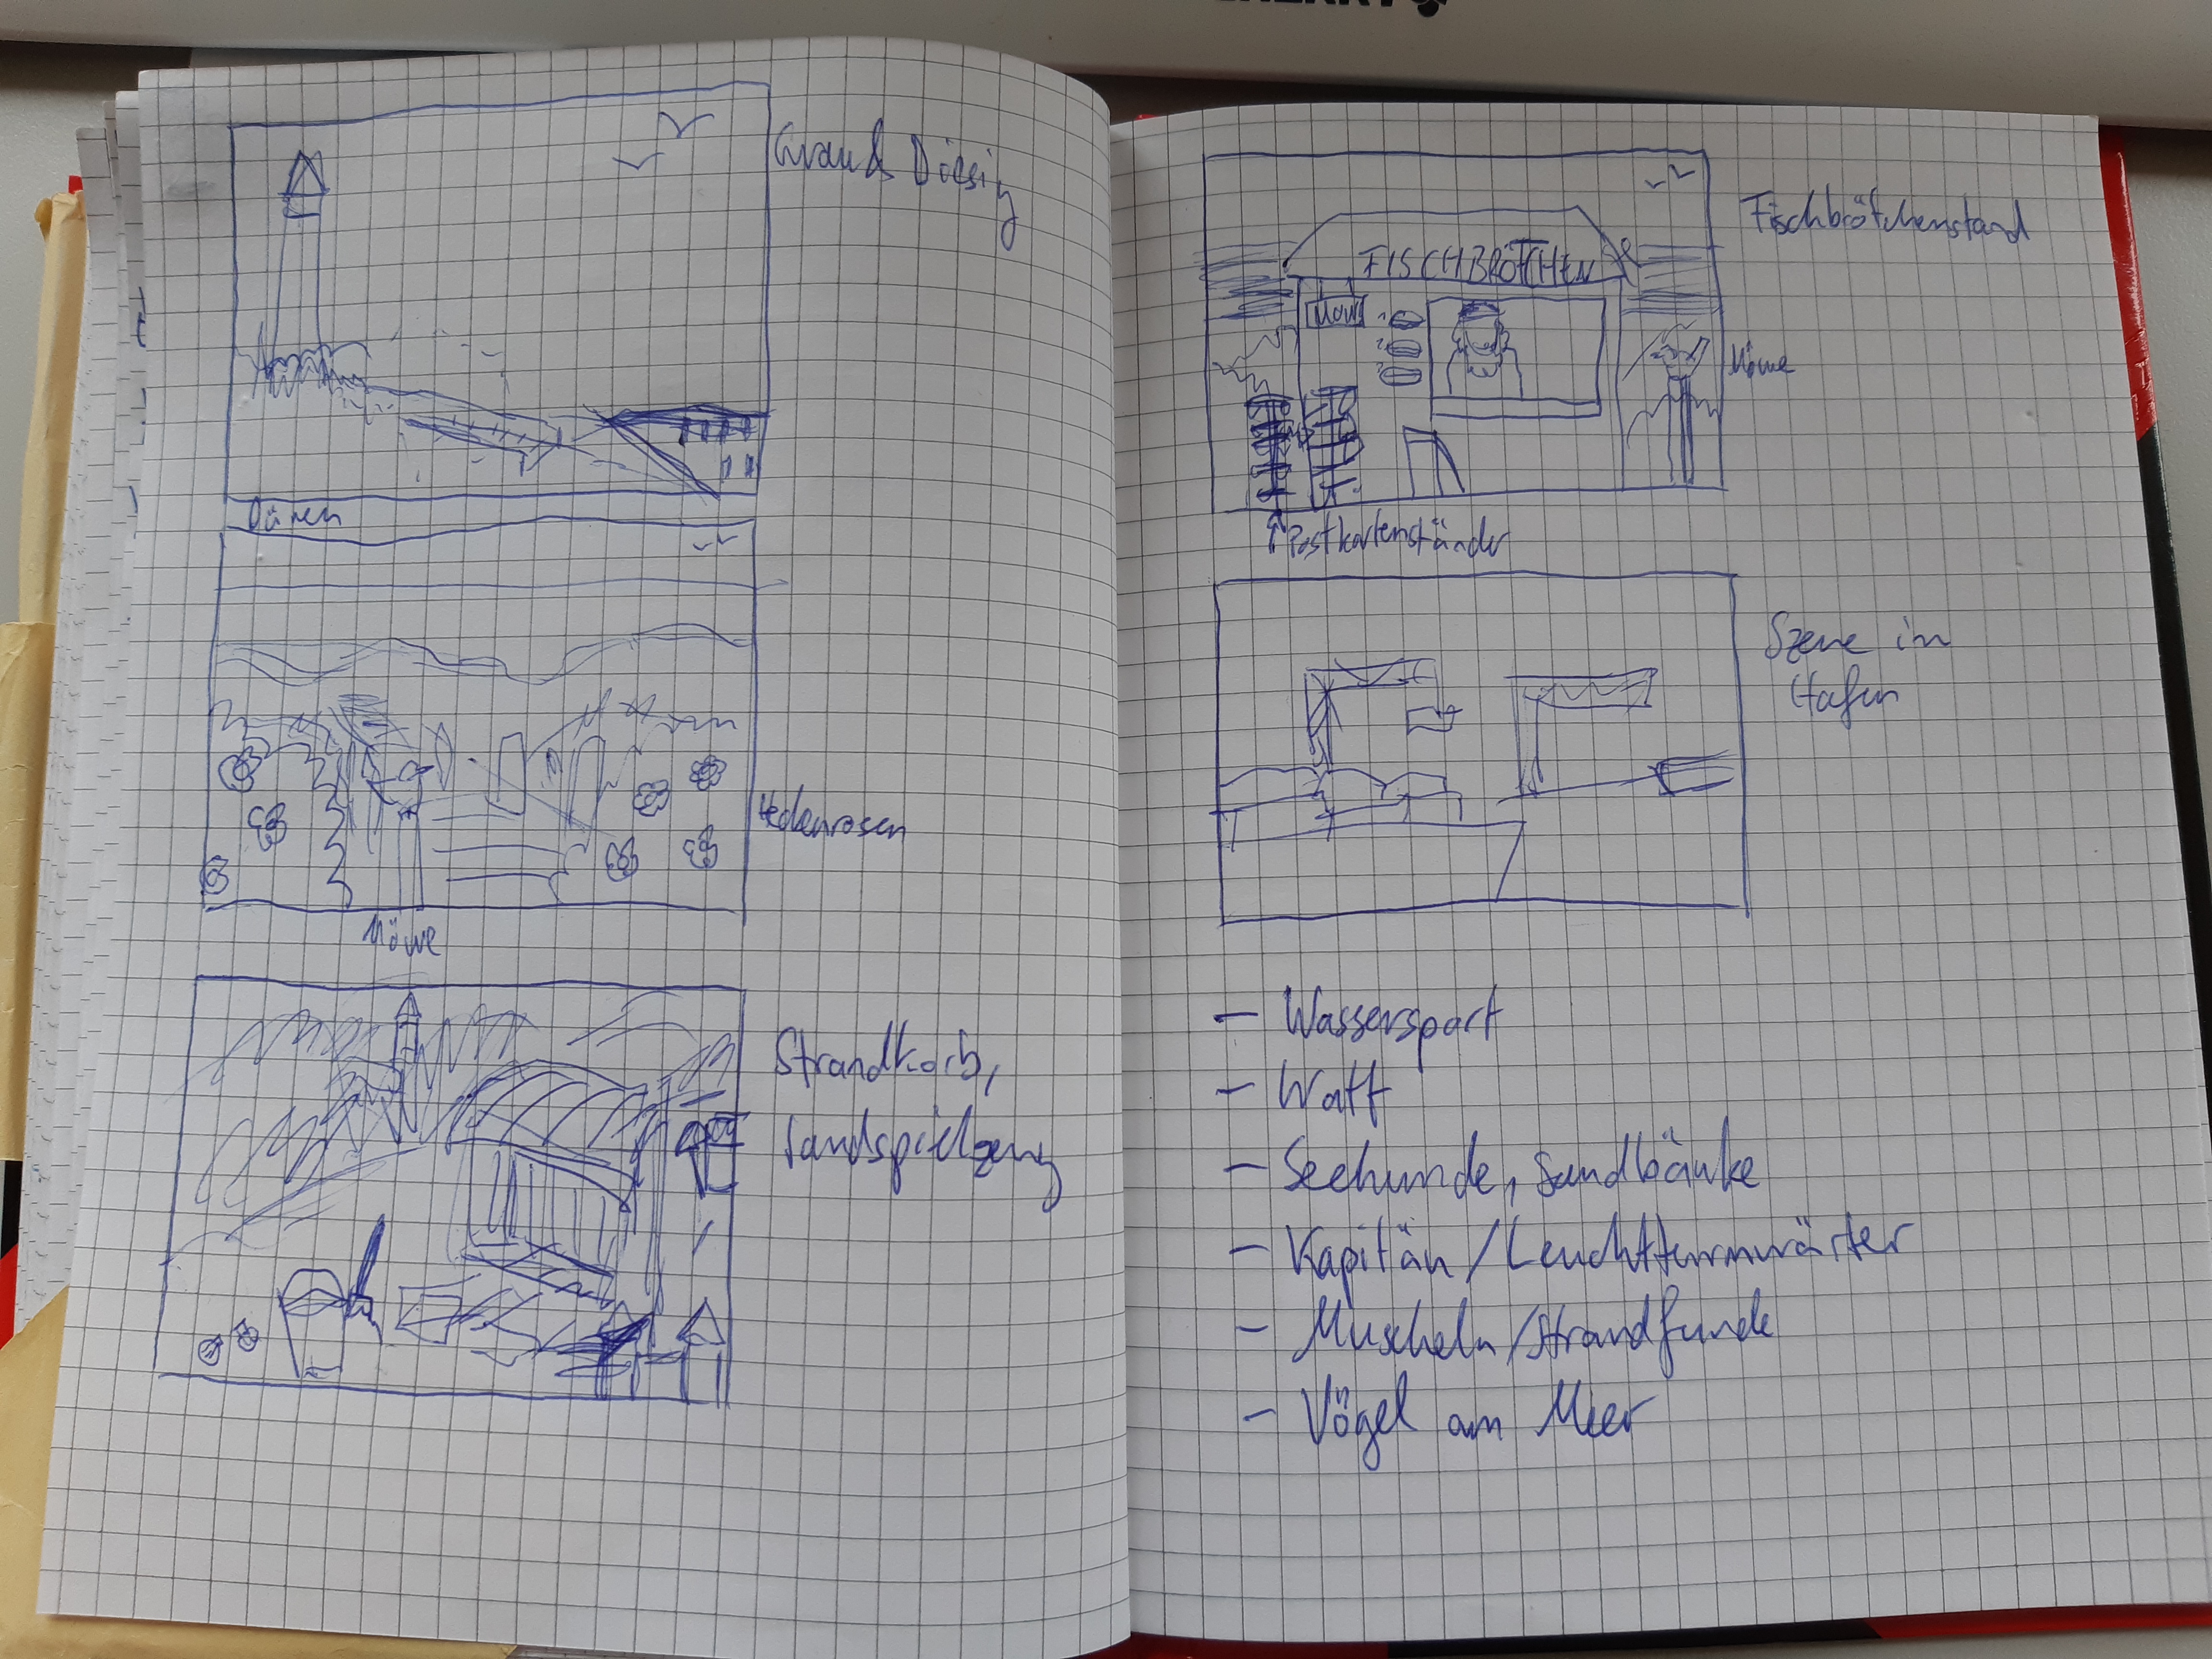 Dünen
Hedenrosen
Möwe
Strandkorb,
Sandspielzeug
FISCHBRÖTCHEN
Fischbrötchenstand
Möwe
Postkartenständer
Szene im
Hafen
- Wassersport
- Watt
- Seehunde, Sandbänke
- Kapitän/Leuchtturmwärter
- Muscheln/Strandfunde
- Vögel am Meer